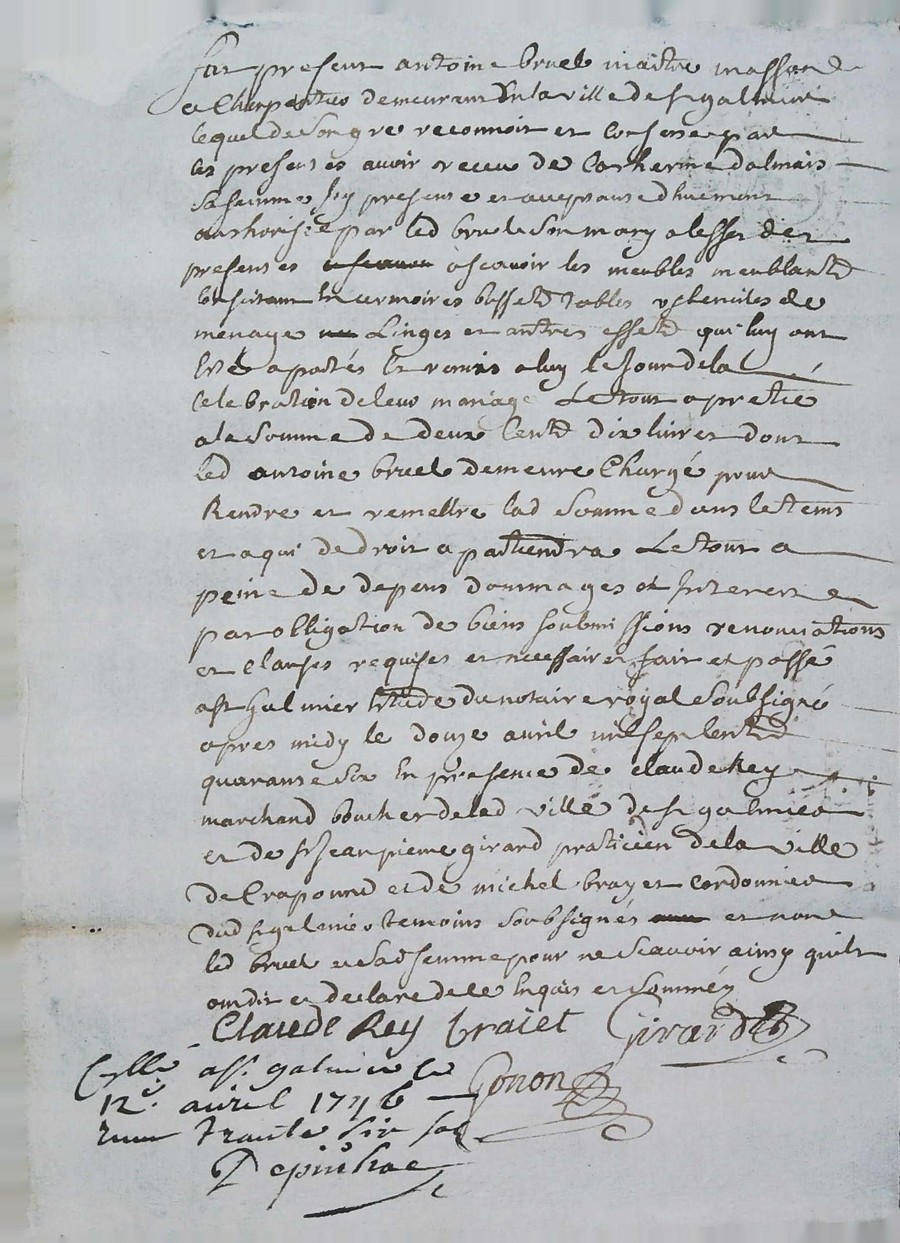 fut present antoine bruel maitre masson
& Charpentier demeurant En la ville de st galmier
lequel de Son gre reconnoit et Confesse par
ces presentes avoir receu de Catherine dalmais
Sa femme Icy presente et acceptante dhuement
authorisée par led bruel Son mary a leffet des
presentes ascavoir les meubles meublants
Consistant En armoires buffets tables ustenciles de
menage Linges et autres effets qui luy ont
Eté aportés Et remis a luy le Jour de la
Celebration de leur mariage Le tout apretié
a la Somme de deux Cents dix livres dont
led antoine bruel demeure Chargé pour
Rendre et remettre lad Somme dans le tems
et a qui de droit apartiendra Le tout a
peine de depens dommages et Interets &
par obligation de biens soubmissions renonciations
et Clauses requises et necessaires fait et passé
a st galmier Etude du notaire royal Soubsigné
apres midy le douze avril mil sept Cents
quarante Six En presence de Claude Rey
marchand boucher de lad ville de st galmier
et de sr Jean pierre girard praticien de la ville
de Craponne et de michel brayet Cordonnier
dud st galmier temoins Soubsignés et non
led bruel et Sad femme pour ne Scavoir ainsy quils
ont dit et declaré de ce Enquis et Sommés
Claude Rey braiet Girard
Collé a st galmier le
12e avril 1746 Gonon
Trante Six